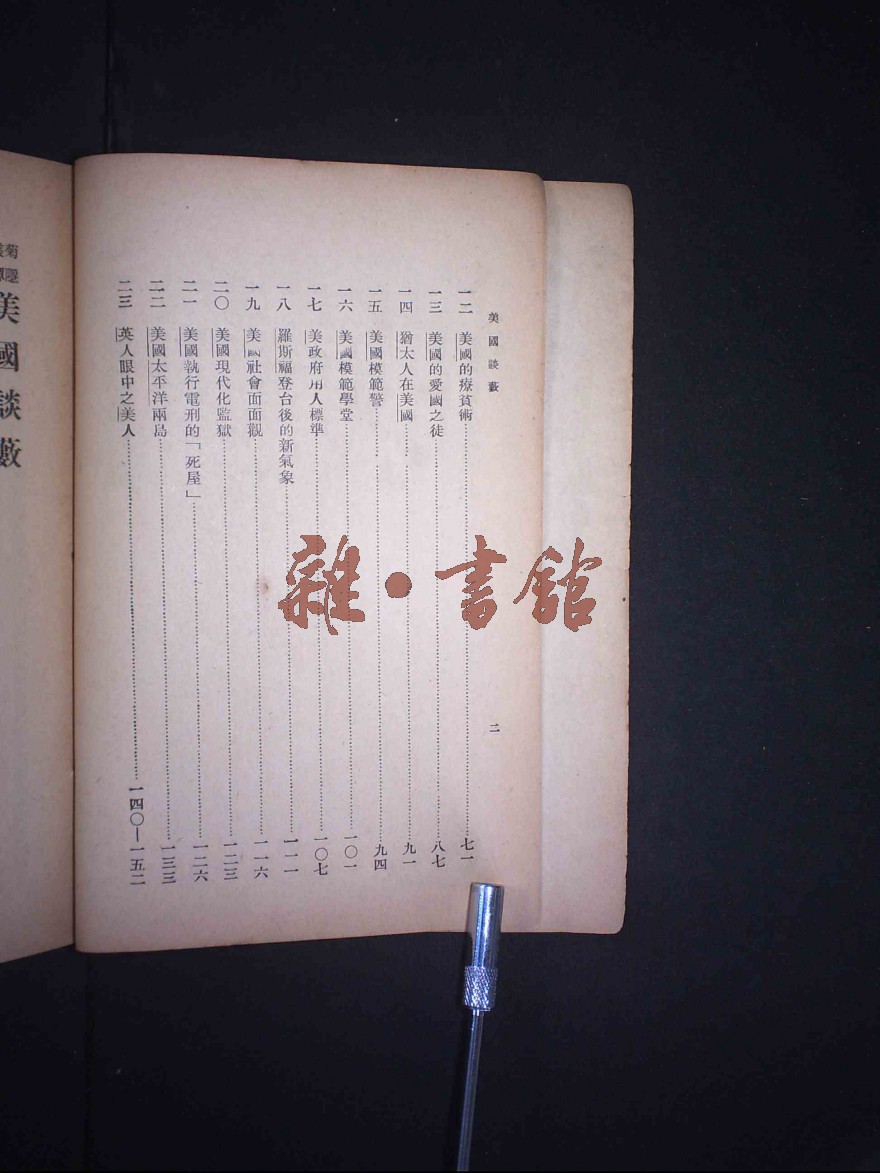 美國談藪
一二 美國的療貧術 七一
一三 美國的愛國之徒 八七
一四 猶太人在美國 九一
一五 美國模範警 九四
一六 美國模範學堂 一〇一
一七 美政府用人標準 一〇七
一八 羅斯福登台後的新氣象 一一一
一九 美國社會面面觀 一一六
二〇 美國現代化監獄 一二三
二一 美國執行電刑的「死屋」 一二六
二二 美國太平洋兩島 一三三
二三 英人眼中之美人 一四〇—一五二
二
美國談藪
雜·書館